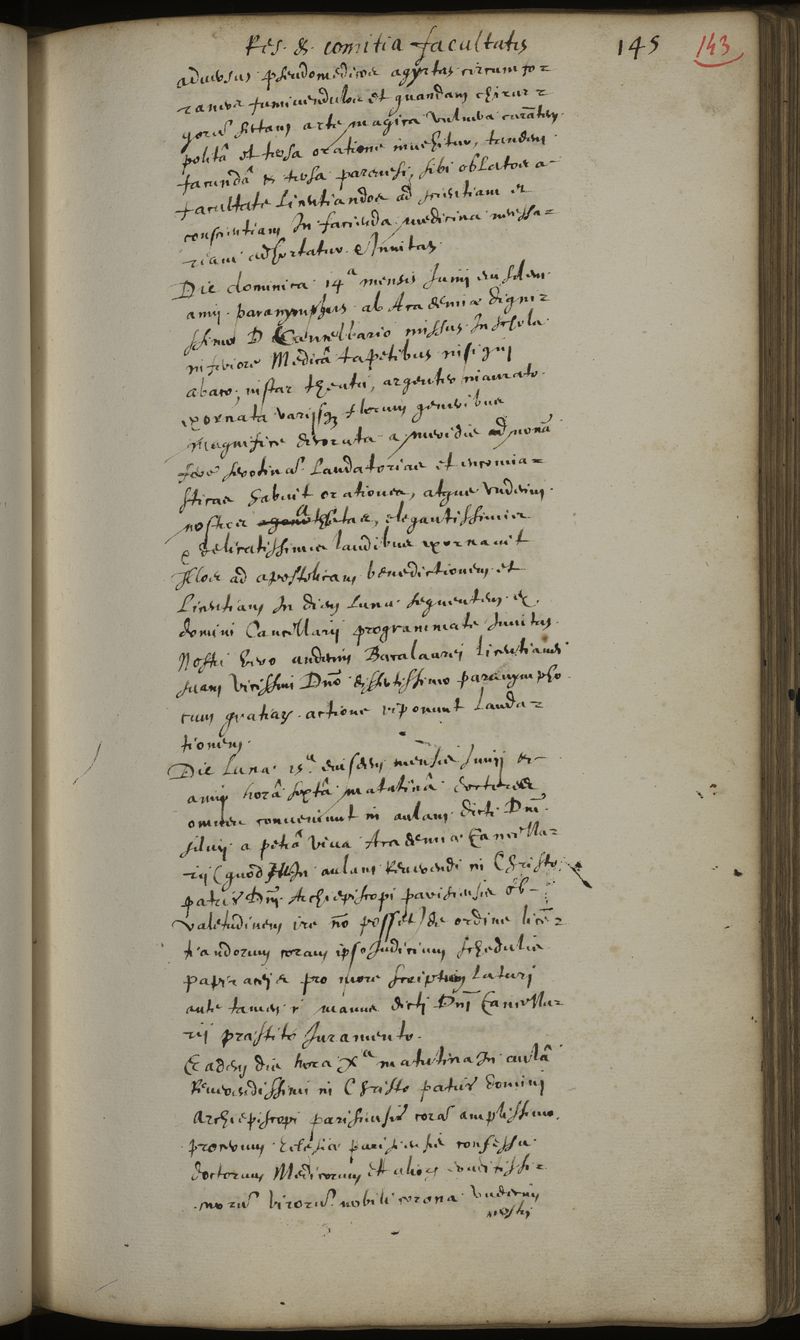 Res & comitia facultatis 145 143
adversus pseudomedicos agyrtas circumfo=
raneos fumivendulos et quandam chirur=
gorum sectam arte magica vulnera curantem
polita et tersa oratione invehitur, tandem
facunda & tersa paraenesi, sibi oblatos a
facultate Licentiandos ad scientiam et
conscientiam In facienda medicina necessa=
riam adhortatur & Invitat.
Die dominica 14ª mensis Junij eiusdem
anni paranymphus ab Academiae digni=
ssimo D Cancellario missus In schola
inferiore Medicâ tapetibus insigni
abaco, instar theatri, argenteo inaurato
exornata varijsq florum generibus
magnifice decorata a meridie ad nonã
fere serotinã Laudatorias et encomia=
sticas habuit orationes, atque undecim
nostros elegantissimis
& delicatissimis laudibus exornavit
Illos ad apostolicam benedictionem et
Licentiam In diem Lunae sequentem ex
domini Cancellarij programmate Invitat
Nostri vero undecim Bacalaurei licentiandi
suam vicissim Dno disertissimo paranympho
cum gratiar actione reponunt Lauda=
tionem.
Die Lunae 15ª eiusdem mensis Junij &
anni horâ sextâ matutinâ doctores
omnes conveniunt in aulam dicti Dni
silvij a petrâ viva Academiae Cancella=
rij (quod In aulam Reverendi in Christo
patris Dni Archiepiscopi parisiensis ob
valetudinem ire nõ posset) de ordine licẽ=
tiandorum coram ipso Judicium schedulis
papiraceis pro more scriptum Laturi
ante tamen in manus dicti Dni Cancella=
rij praestito Juramento.
Eadem die hora Xª matutina In aulâ
Reverendissimi in Christo patris domini
Archiepiscopi parisiensis corã amplissimo
procerum Eclesiae parisiensis consessu
doctorum Medicorum et alior eruditissi=
morũ virorũ nobili corona undecim
nostri